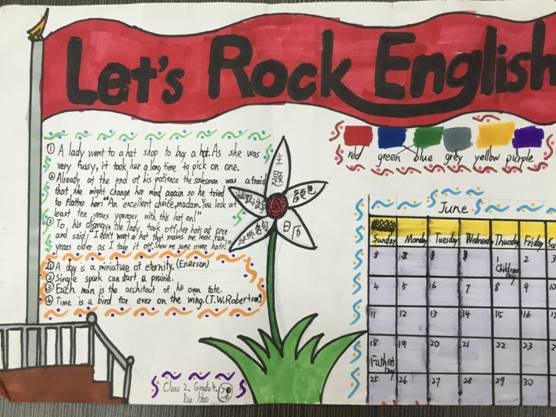 Let's Rock English
① A lady went to a hat shop to buy a hat. As she was
very fussy, it took her a long time to pick on one.
② Already at the end of his patience the salesman was afraid
that she might change her mind again so he tried
to flatter her: "An excellent choice, madam. You look at
least ten years younger with this hat on!"
③ To his dismay, the lady took off the hat at once
and said: I don't want a hat that makes me look ten
years older as I take it off. Show me some more hats!"
① A day is a miniature of eternity. (Emerson)
② Single spark can start a prairie.
③ Each man is the architect of his own fate.
④ Time is a bird for ever on the wing. (T.W.Robertson)
Class 2, Grade
主题
日历
red green blue grey yellow purple
June
Sunday Monday Tuesday Wednesday Thursday Friday
1 2 3
Children
Day
4 5 6 7 8 9
11 12 13 14 15 16
18 19 20 21 22 23
Father
Day
25 26 27 28 29 30